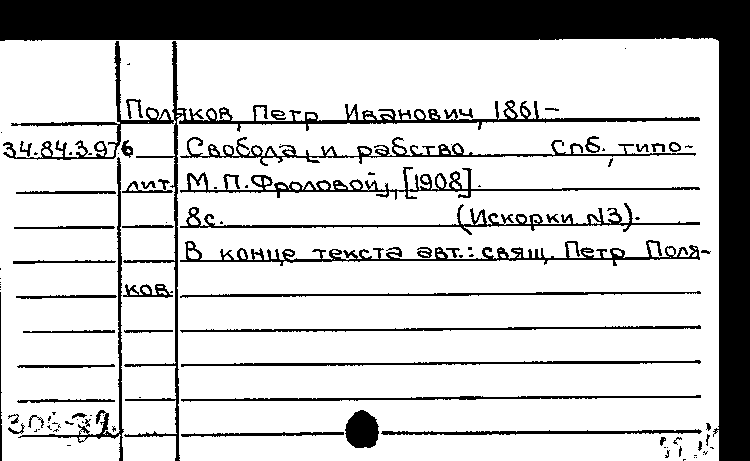 Поляков, Петр Иванович, 1861-
34.84.3.976 Свобода и рабство. Спб., типо-
лит. М.П.Фроловой, [1908].
8с. (Искорки N3).
В конце текста авт.: свящ. Петр Поля-
ков.
306-82.